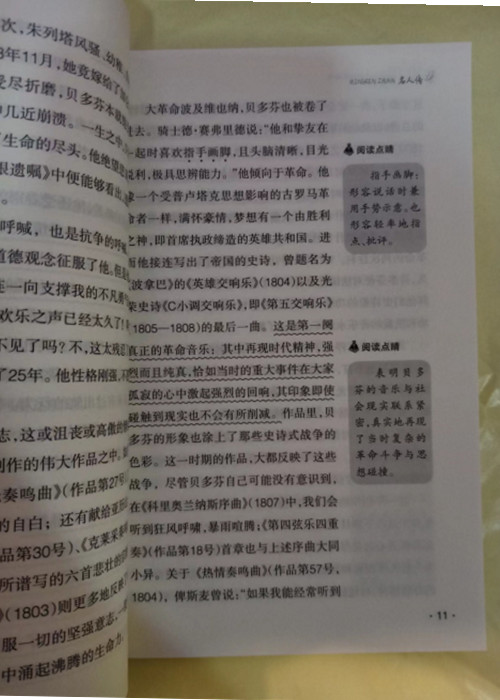 次，朱列塔风骚、幼稚、自
年11月，她竟嫁给了
受尽折磨，贝多芬本就
几近崩溃。一生之中
生命的尽头。他绝望
遗嘱》中便能够看出
呼喊，也是抗争的呼
道德观念征服了他。但是
一向支撑我的不凡勇
欢乐之声已经太久了！
不见了吗？不，这太残忍
了25年。他性格刚强，不
志，这或沮丧或高傲的
创作的伟大作品之中。如
奏鸣曲》（作品第27号）
的自白；还有献给亚历
品第30号）、《克莱采奏鸣
所谱写的六首悲壮的
》（1803）则更多地反映了
服一切的坚强意志，一
中涌起沸腾的生命力
MINGREN ZHUAN 名人传
大革命波及维也纳，贝多芬也被卷了
去。骑士德·赛弗里德说：“他和挚友在
一起时喜欢指手画脚，且头脑清晰，目光
锐利，极具思辨能力。”他倾向于革命。他
一个受普卢塔克思想影响的古罗马革
命者一样，满怀豪情，梦想有一个由胜利
之神，即首席执政缔造的英雄共和国。进
而他接连写出了帝国的史诗，曾题名为
波拿巴》的《英雄交响乐》（1804）以及光
荣史诗《C小调交响乐》，即《第五交响乐》
1805—1808）的最后一曲。这是第一阕
真正的革命音乐：其中再现时代精神，强
烈而且纯真，恰如当时的重大事件在大家
孤寂的心中激起强烈的回响，其印象即使
碰触到现实也不会有所削减。作品里，贝
多芬的形象也涂上了那些史诗式战争的
色彩。这一时期的作品，大都反映了这些
战争，尽管贝多芬自己可能没有意识到，
在《科里奥兰纳斯序曲》（1807）中，我们会
听到狂风呼啸，暴雨喧腾；《第四弦乐四重
奏》（作品第18号）首章也与上述序曲大同
小异。关于《热情奏鸣曲》（作品第57号，
1804），俾斯麦曾说：“如果我能经常听到
阅读点睛
指手画脚：
形容说话时兼
用手势示意。也
形容轻率地指
点、批评。
阅读点睛
表明贝多
芬的音乐与社
会现实联系紧
密，真实地再现
了当时复杂的
革命斗争与思
想碰撞。
·11·